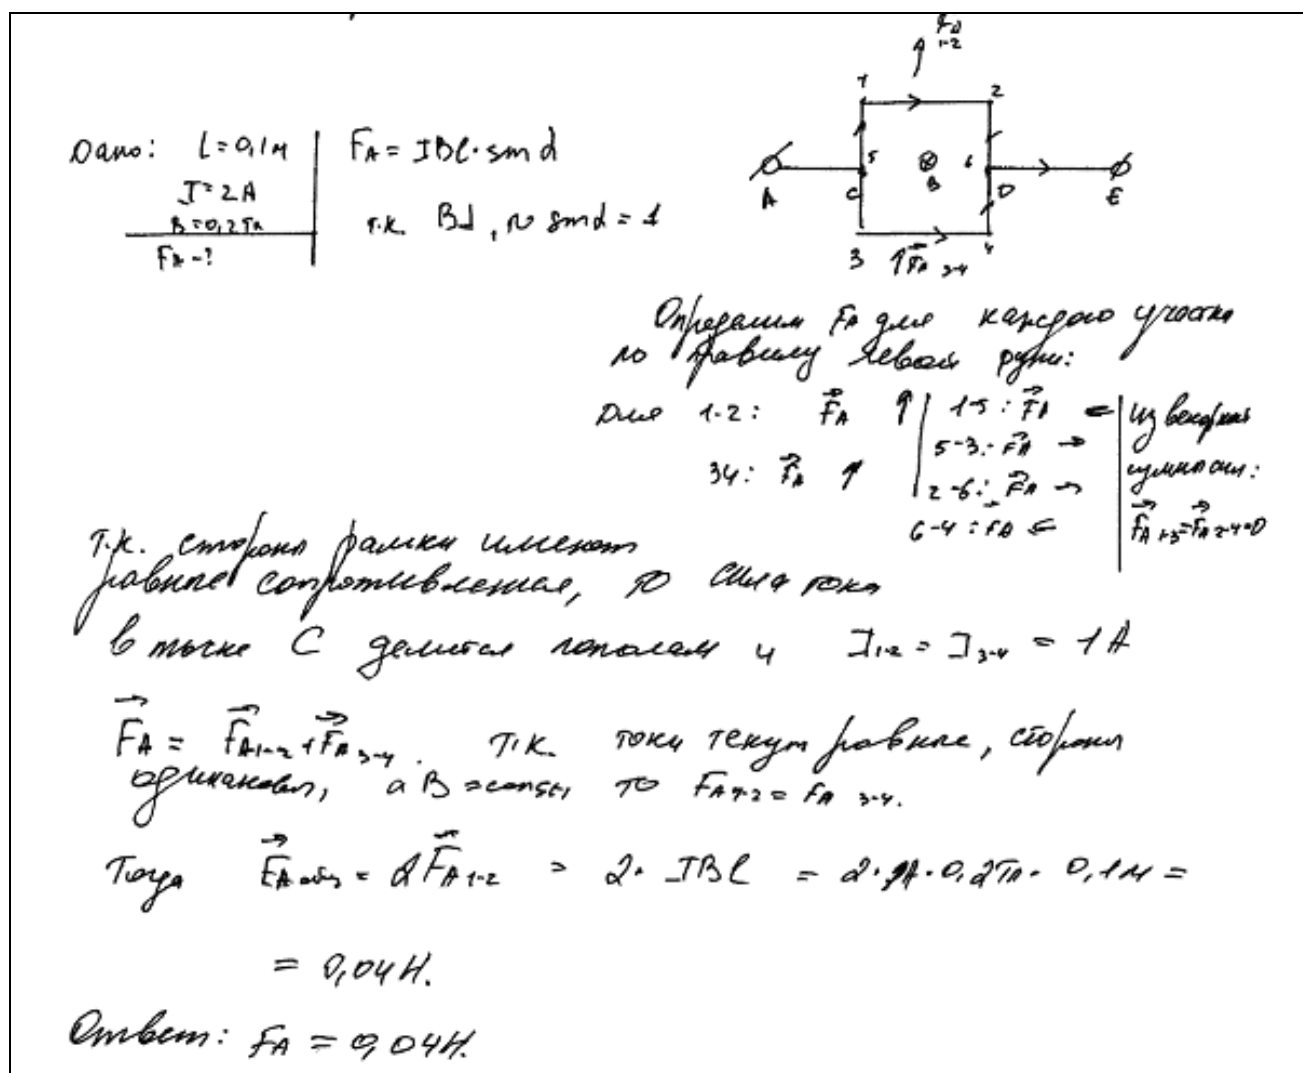 Дано: l = 0,1м
I = 2А
B = 0,2Тл
FA - ?
FA = IBl·sinα
т.к. B⊥, то sinα = 1
FA 1-2
1 2
A 5 C B 6 D E
3 FA 3-4 4
Определим FA для каждого участка
по правилу левой руки:
Для 1-2: FA ↑
34: FA ↑
1-5: FA ←
5-3: FA →
2-6: FA →
6-4: FA ←
из векторной
суммы сил:
FA 1-3 = FA 2-4 = 0
т.к. стороны рамки имеют
равные сопротивления, то сила тока
в точке C делится пополам и I1-2 = I3-4 = 1А
FA = FA1-2 + FA 3-4. т.к. токи текут равные, стороны
одинаковы, а B = const, то FA1-2 = FA 3-4.
Тогда FA общ = 2FA 1-2 = 2·IBl = 2·1А·0,2Тл·0,1м =
= 0,04Н.
Ответ: FA = 0,04Н.